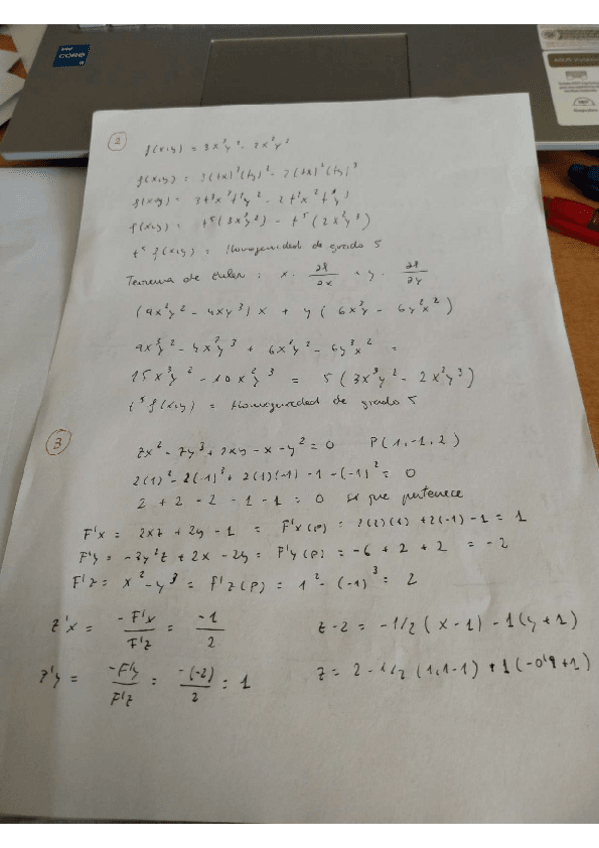 intel
CORE
i5
2
f(x,y) = 3x³y² - 2x²y³
f(x,y) = 3(tx)³(ty)² - 2(tx)²(ty)³
f(x,y) = 3t³x³t²y² - 2t²x²t³y³
f(x,y) = t⁵(3x³y²) - t⁵(2x²y³)
t⁵ f(x,y) = Homogeneidad de grado 5
Teorema de Euler : x · ∂f/∂x + y · ∂f/∂y
(9x²y² - 4xy³) x + y (6x³y - 6y²x²)
9x³y² - 4x²y³ + 6x³y² - 6y³x² =
15x³y² - 10x²y³ = 5 (3x³y² - 2x²y³)
t⁵ f(x,y) = Homogeneidad de grado 5
3
zx² - zy³ + 2xy - x - y² = 0 P(1,-1,2)
2(1)² - 2(-1)³ + 2(1)(-1) - 1 - (-1)² = 0
2 + 2 - 2 - 1 - 1 = 0 si que pertenece
F'x = 2xz + 2y - 1 = F'x(P) = 2(2)(1) + 2(-1) - 1 = 1
F'y = -3y²z + 2x - 2y = F'y(P) = -6 + 2 + 2 = -2
F'z = x² - y³ = F'z(P) = 1² - (-1)³ = 2
z'x = -F'x/F'z = -1/2 z - 2 = -1/2 (x - 1) - 1(y + 1)
z'y = -F'y/F'z = -(-2)/2 = 1 z = 2 - 1/2 (1,1 - 1) + 1(-0'9 + 1)